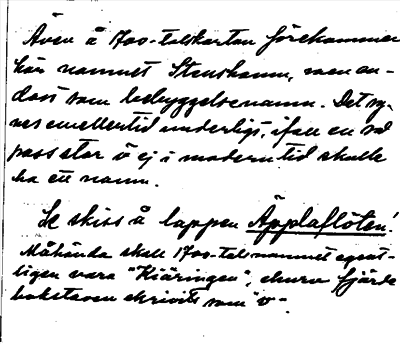 Även å 1700-talskartan förekommer
här namnet Stenshamn, men en-
dast som bebyggelsenamn. Det sy-
nes emellertid underligt, ifall en så
pass stor ö ej i modern tid skulle
ha ett namn.
Se skiss å lappen Äpplaflöten!
Måhända skall 1700-tals namnet egent-
ligen vara "Kiäringen", ehuru fjärde
bokstaven skrivits som "v".